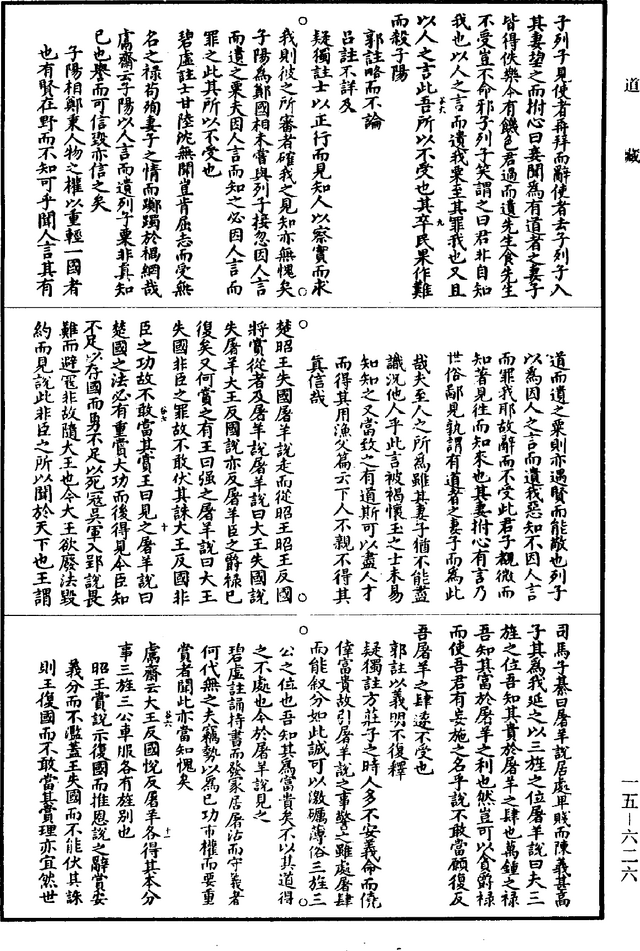 道藏
子列子見使者再拜而辭使者去子列子入
其妻望之而拊心曰妾聞為有道者之妻子
皆得佚樂今有饑色君過而遺先生食先生
不受豈不命邪子列子笑謂之曰君非自知
我也以人之言而遺我粟至其罪我也又且
以人之言此吾所以不受也其卒民果作難
而殺子陽
郭註略而不論
呂註不詳及
疑獨註士以正行而見知人以察實而求
我則彼之所審者確我之見知亦無愧矣
子陽為鄭國相未嘗與列子接忽因人言
而遺之粟夫因人言而知之必因人言而
罪之此其所以不受也
碧虛註士甘陸沈無聞豈肯屈志而受無
名之祿苟殉妻子之情而躑躅於禍網哉
鬳齋云子陽以人言而遺列子粟非真知
己也譽而可信毀亦信之矣
子陽相鄭秉人物之權以重輕一國者
也有賢在野而不知可乎聞人言其有
道而遺之粟則亦遇賢而能敬也列子
以為因人之言而遺我惡知不因人言
而罪我耶故辭而不受此君子覩微而
知著見往而知來也其妻拊心有言乃
世俗鄙見孰謂有道者之妻子而為此
哉夫至人之所為雖其妻子猶不能盡
識況他人乎此言被褐懷玉之士未易
知知之又當致之有道斯可以盡人才
而得其用漁父篇云下人不親不得其
真信哉
楚昭王失國屠羊說走而從昭王昭王反國
將賞從者及屠羊說屠羊說曰大王失國說
失屠羊大王反國說亦反屠羊臣之爵祿已
復矣又何賞之有王曰强之屠羊說曰大王
失國非臣之罪故不敢伏其誅大王反國非
臣之功故不敢當其賞王曰見之屠羊說曰
楚國之法必有重賞大功而後得見今臣知
不足以存國而勇不足以死寇吳軍入郢說畏
難而避寇非故隨大王也今大王欲廢法毀
約而見說此非臣之所以聞於天下也王謂
司馬子綦曰屠羊說居處卑賤而陳義甚高
子其為我延之以三旌之位屠羊說曰夫三
旌之位吾知其貴於屠羊之肆也萬鍾之祿
吾知其富於屠羊之利也然豈可以食爵祿
而使吾君有妄施之名乎說不敢當願復反
吾屠羊之肆遂不受也
郭註以義明不復釋
疑獨註方莊子之時人多不安義命而僥
倖富貴故引屠羊說之事警之雖處屠肆
而能叙分如此誠可以激礪薄俗三旌三
公之位也吾知其為富貴矣不以其道得
之不處也今於屠羊說見之
碧虛註誦持書而發冢居屠沽而守義者
何代無之夫竊勢以為己功市權而要重
賞者聞此亦當知愧矣
鬳齋云大王反國悅反屠羊各得其本分
事三旌三公車服各有旌別也
昭王賞說示復國而推恩說之辭賞安
義分而不濫蓋王失國而不能伏其誅
則王復國而不敢當其賞理亦宜然世
一五—六二六